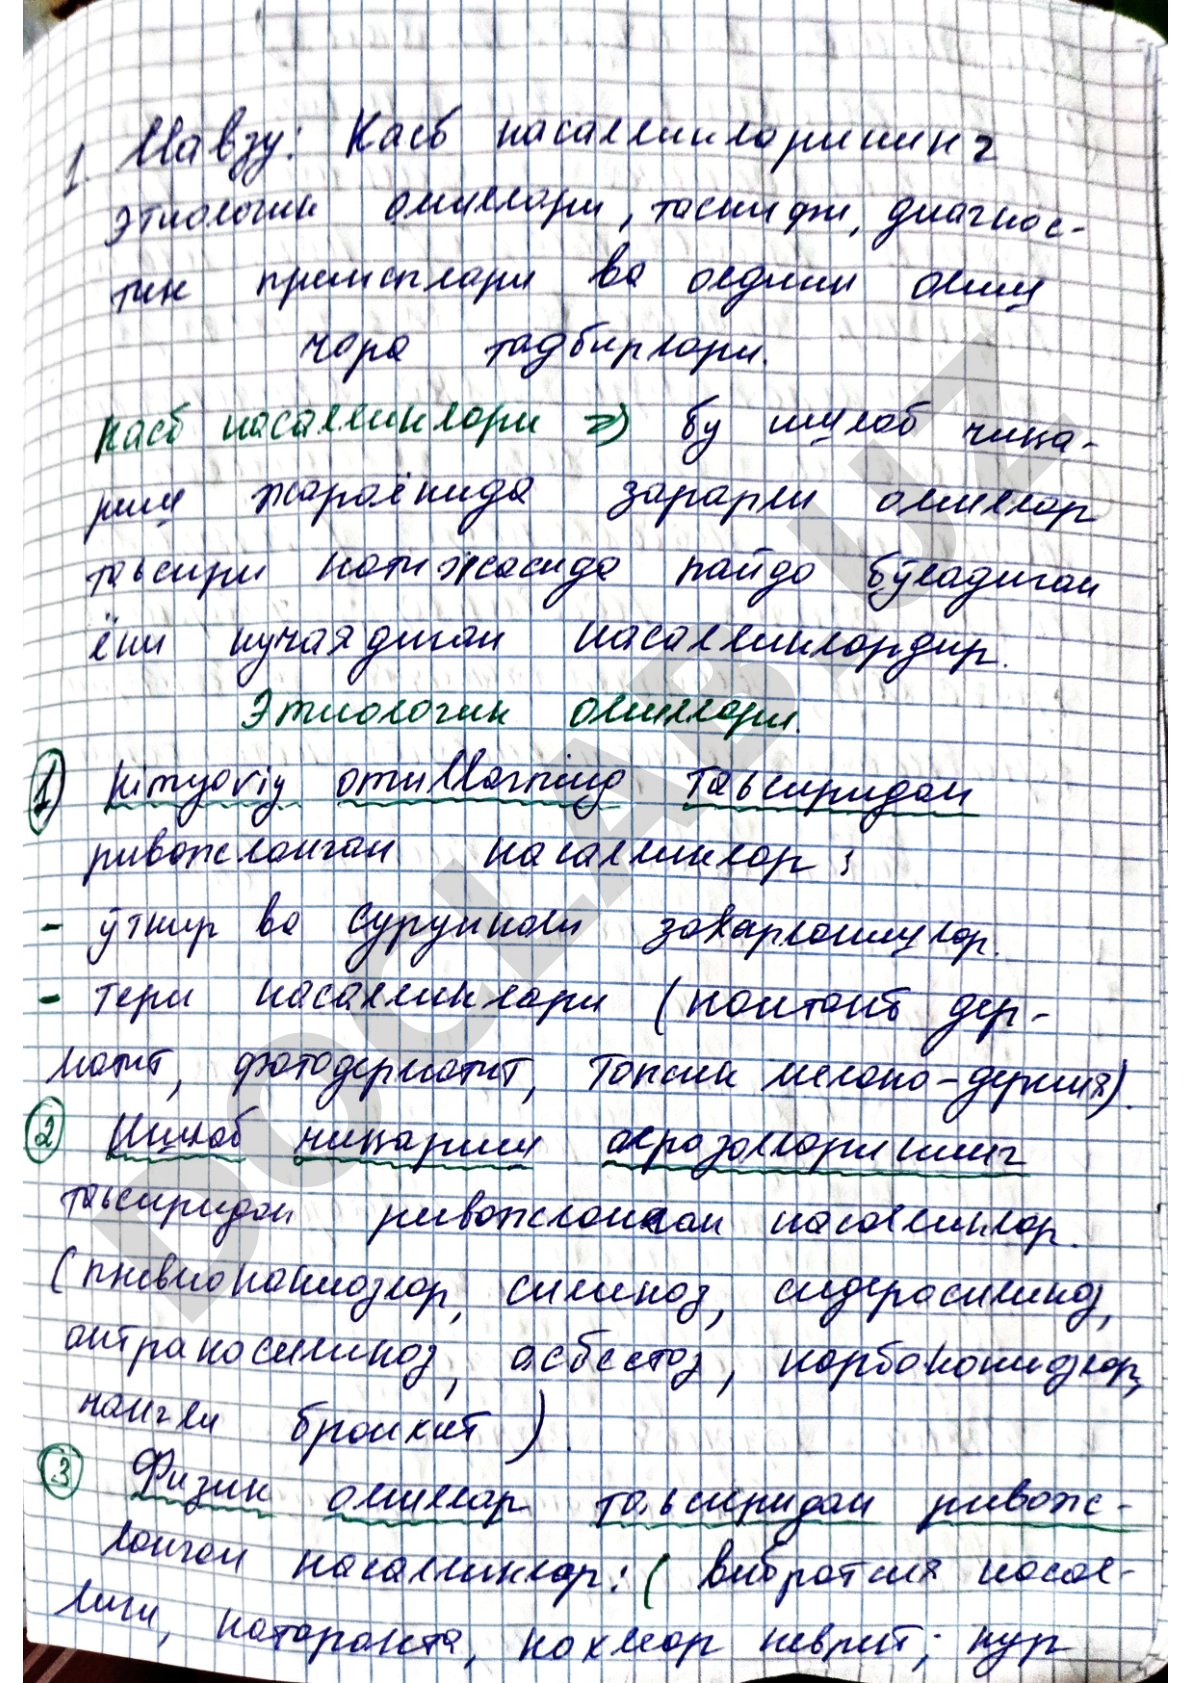 1. Мавзу: Касб касалликларининг
этиологик омиллари, таснифи, диагнос-
тик принсплари ва олдини олиш
чора тадбирлари.
Касб касалликлари => бу ишлаб чиқа-
риш жараёнида зарарли омиллар
таъсири натижасида пайдо бўладиган
ёки кучаядиган касалликлардир.
Этиологик омиллари.
1) Kimyoviy omillarning таъсиридан
ривожланган касалликлар:
- ўткир ва сурункали заҳарланишлар.
- тери касалликлари (контакт дер-
матит, фотодерматит, Токсик мелано-дермия).
2) Ишлаб чиқариш аерозолларининг
таъсиридан ривожланган касалликлар.
(пневмокониозлар, силикоз, сидеросиликоз,
антракосиликоз, асбестоз, карбокониозлар,
чангли бронхит).
3) Физик омиллар таъсиридан ривож-
ланган касалликлар: (вибратсия касал-
лиги, катаракта, кохлеар неврит; нур
DOCLAB.UZ